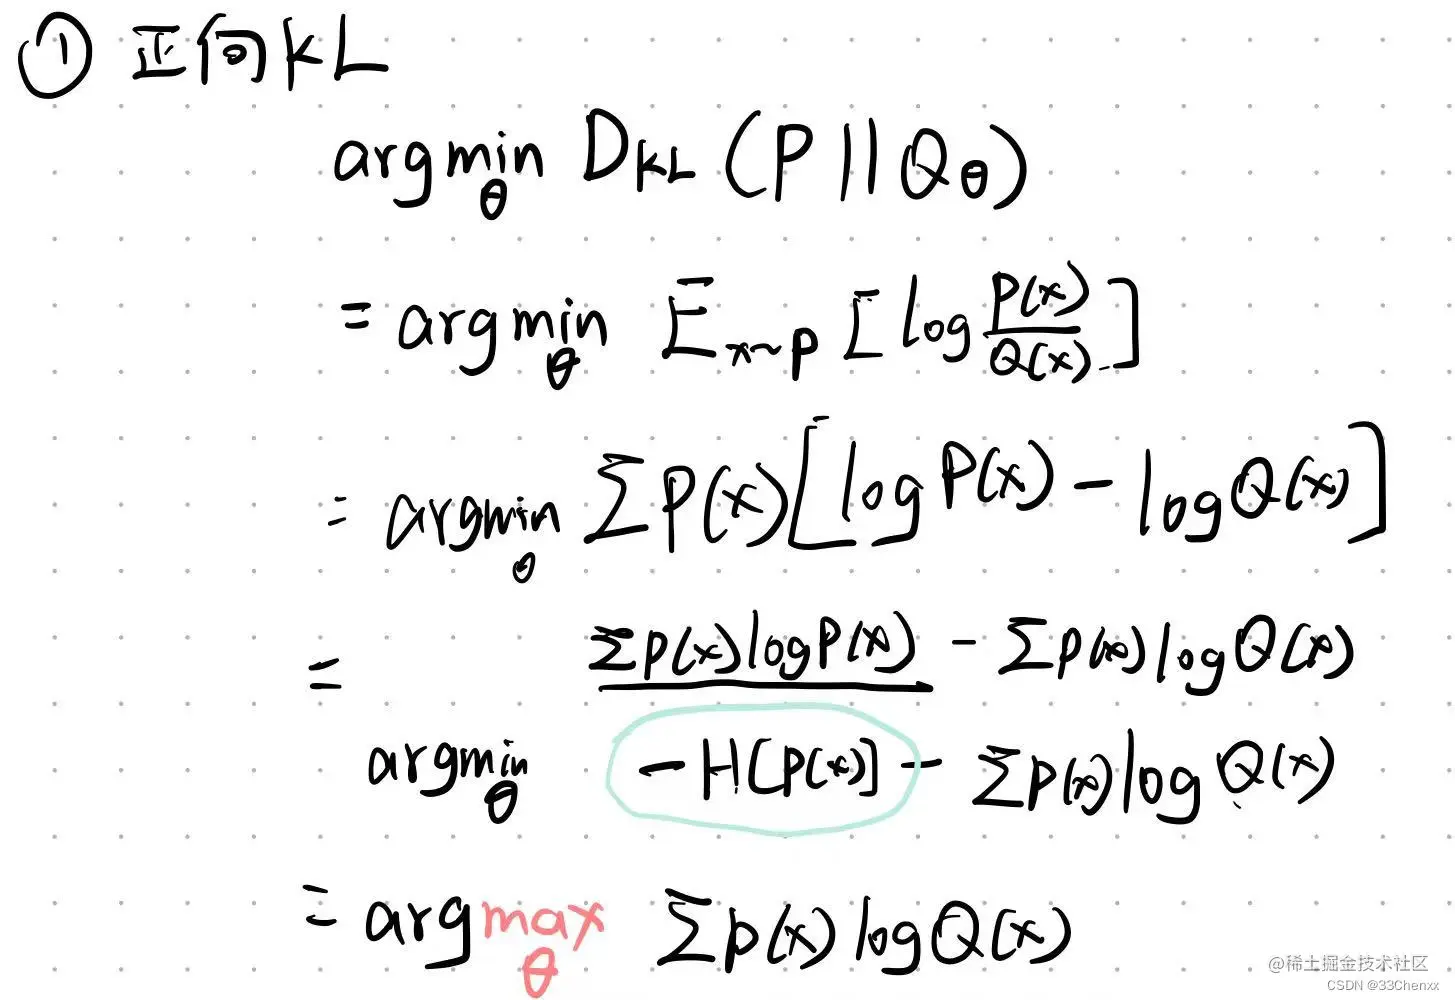 ① 正向KL
argmin_θ D_KL (P || Q_θ)
= argmin_θ E_x~p [log P(x)/Q(x)]
= argmin_θ Σ P(x)[log P(x) - log Q(x)]
= Σ p(x) log p(x) - Σ p(x) log Q(x)
argmin_θ - H[p(x)] - Σ p(x) log Q(x)
= argmax_θ Σ p(x) log Q(x)
@稀土掘金技术社区
CSDN @33Chenxx